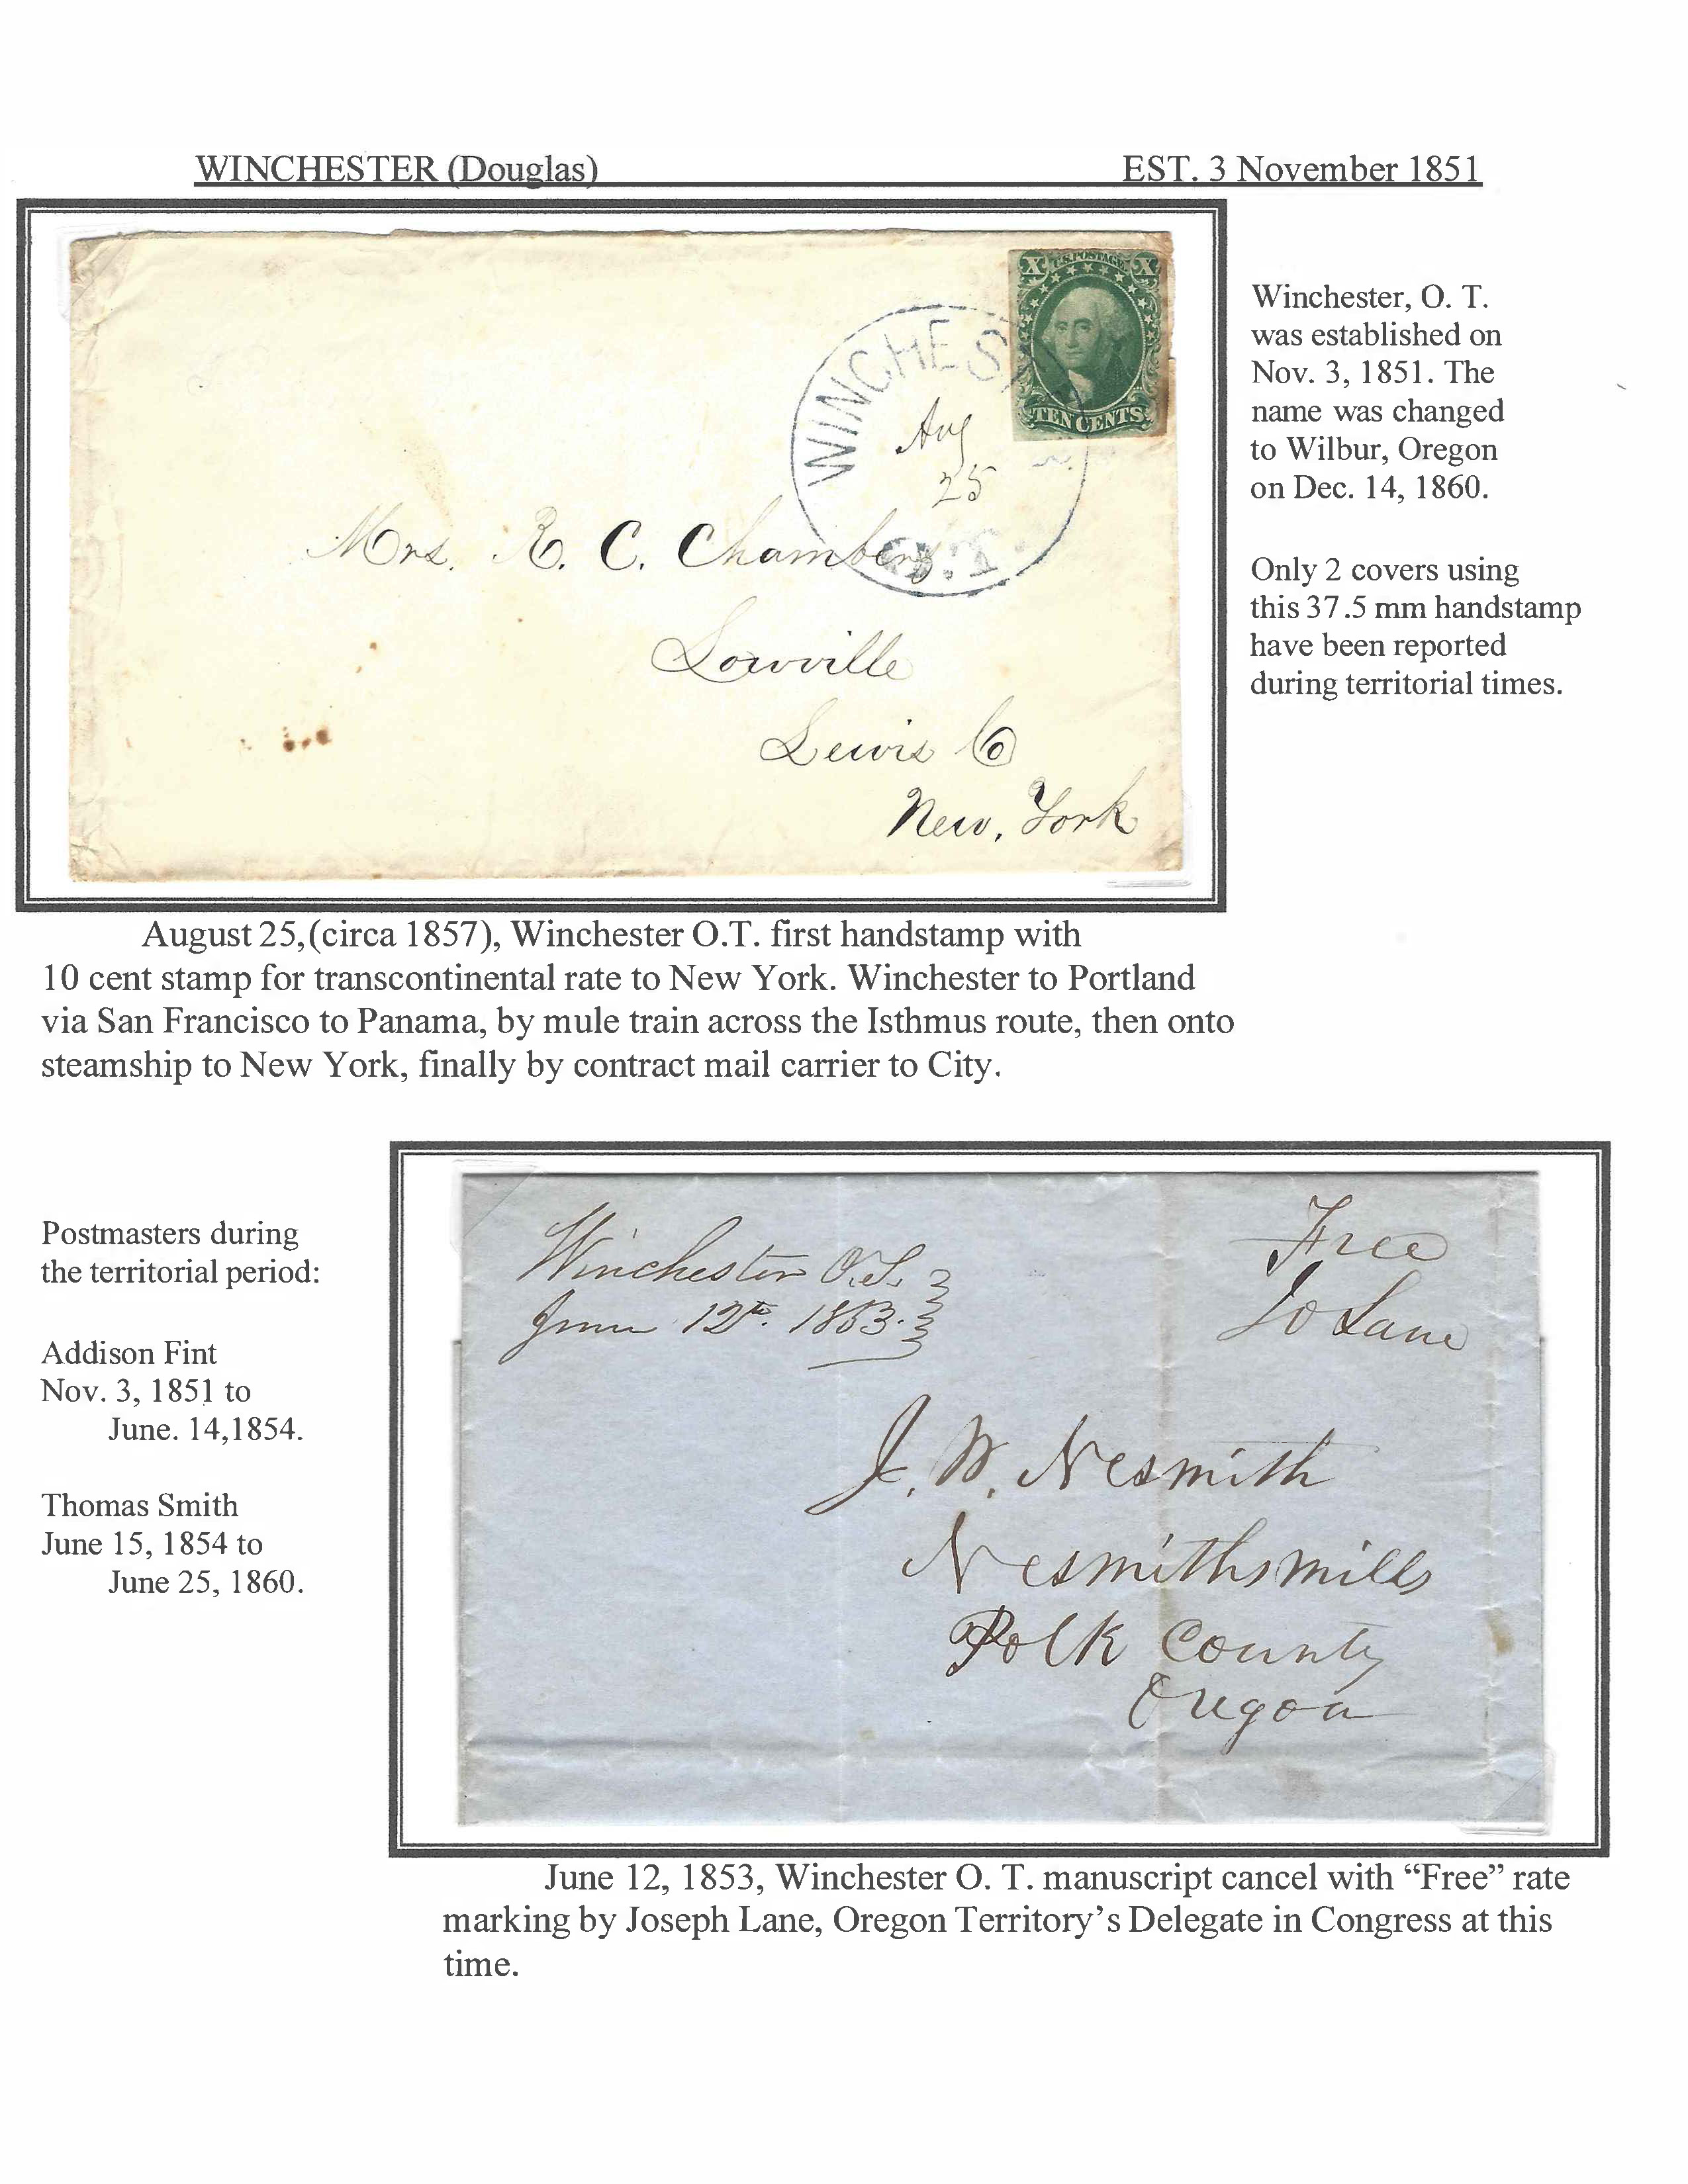 WINCHESTER (Douglas) EST. 3 November 1851
U.S. POSTAGE
X X
TEN CENTS
WINCHEST
Aug
25
O.T.
Mrs. R. C. Chambers
Lowville
Lewis Co
New, York
Winchester, O. T.
was established on
Nov. 3, 1851. The
name was changed
to Wilbur, Oregon
on Dec. 14, 1860.
Only 2 covers using
this 37.5 mm handstamp
have been reported
during territorial times.
August 25,(circa 1857), Winchester O.T. first handstamp with
10 cent stamp for transcontinental rate to New York. Winchester to Portland
via San Francisco to Panama, by mule train across the Isthmus route, then onto
steamship to New York, finally by contract mail carrier to City.
Postmasters during
the territorial period:
Addison Fint
Nov. 3, 1851 to
June. 14,1854.
Thomas Smith
June 15, 1854 to
June 25, 1860.
Winchester O.T.
June 12th. 1853.
Free
Jo Lane
J. W. Nesmith
Nesmithsmills
Polk County
Oregon
June 12, 1853, Winchester O. T. manuscript cancel with “Free” rate
marking by Joseph Lane, Oregon Territory’s Delegate in Congress at this
time.